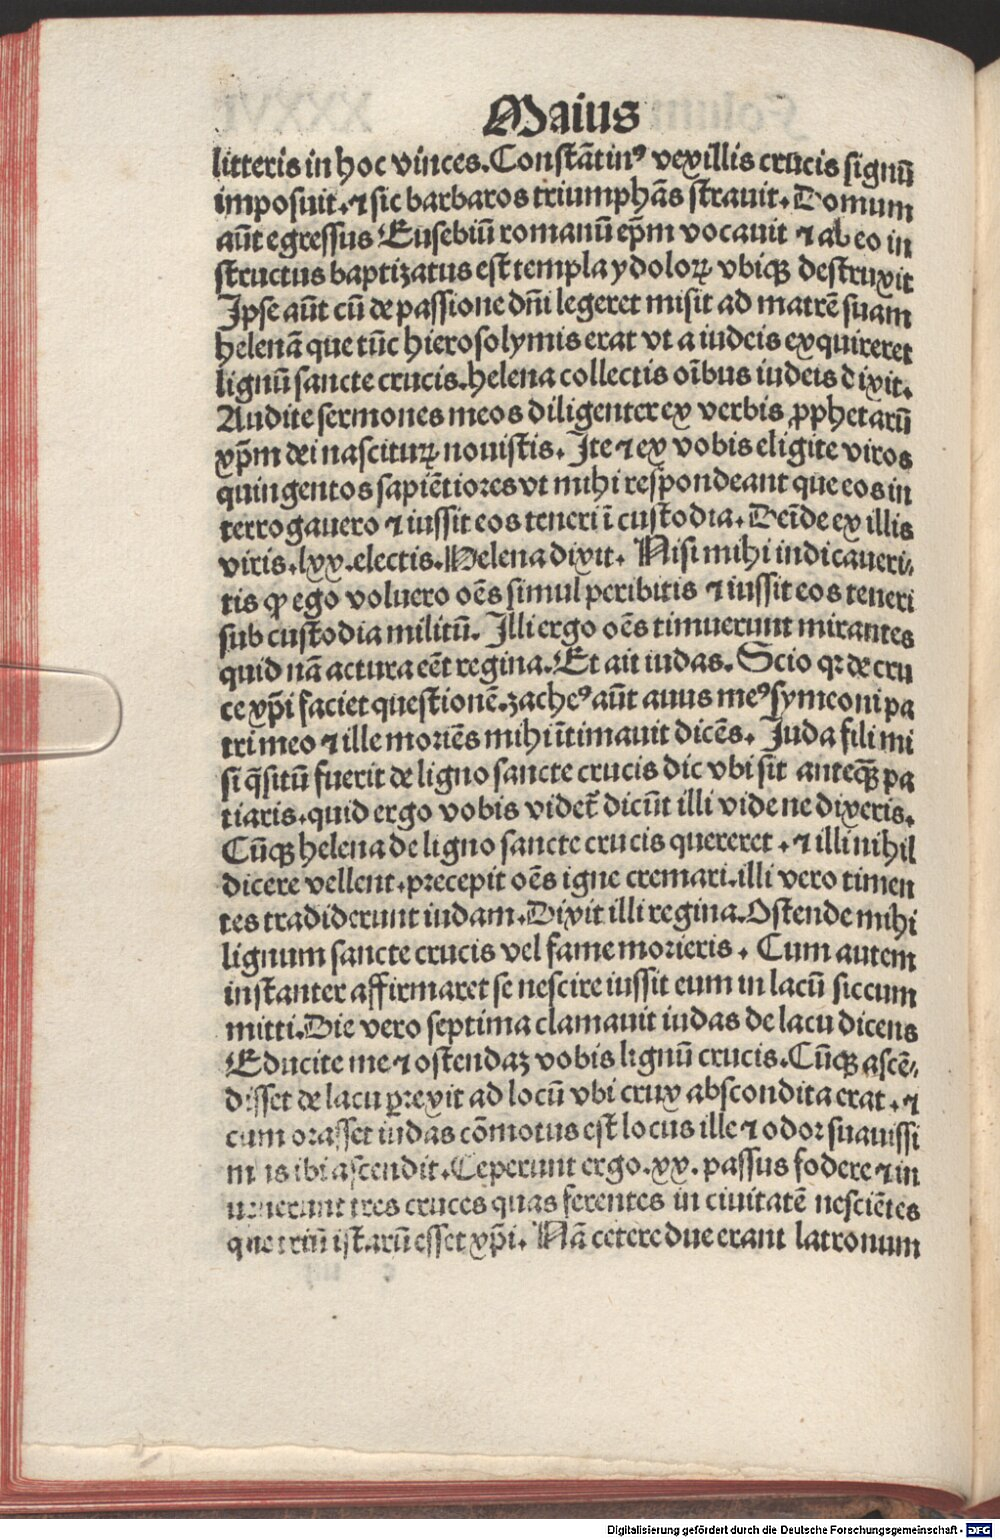 Maius
litteris in hoc vinces. Constātinꝰ vexillis crucis signū
imposuit. ⁊ sic barbaros triumphās strauit. Domum
aūt egressus Eusebiū romanū ep̄m vocauit ⁊ ab eo in
structus baptizatus est templa ydoloꝝ vbiqꝫ destruxit
Ipse aūt cū de passione dn̄i legeret misit ad matrē suam
helenā que tūc hierosolymis erat vt a iudeis exquireret
lignū sancte crucis. helena collectis oībus iudeis dixit.
Audite sermones meos diligenter ex verbis ꝓphetarū
xp̄m dei nascituꝝ nouistis. Ite ⁊ ex vobis eligite viros
quingentos sapiētiores vt mihi respondeant que eos in
terrogauero ⁊ iussit eos teneri ī custodia. Deīde ex illis
viris. lxx. electis. Helena dixit. Nisi mihi indicaueri⸗
tis ꝙ ego voluero oēs simul peribitis ⁊ iussit eos teneri
sub custodia militū. Illi ergo oēs timuerunt mirantes
quid nā actura eēt regina. Et ait iudas. Scio qꝛ de cru
ce xp̄i faciet questionē. zacheꝰ aūt auus meꝰ symeoni pa
tri meo ⁊ ille moriēs mihi ītimauit dicēs. Iuda fili mi
si q̄situ̅ fuerit de ligno sancte crucis dic vbi sit anteqꝫ̄ pa
tiaris. quid ergo vobis videt᷑ dicūt illi vide ne dixeris.
Cūqꝫ helena de ligno sancte crucis quereret. ⁊ illi nihil
dicere vellent. precepit oēs igne cremari. illi vero timen
tes tradiderunt iudam. Dixit illi regina. Ostende mihi
lignum sancte crucis vel fame morieris. Cum autem
instanter affirmaret se nescire iussit eum in lacū siccum
mitti. Die vero septima clamauit iudas de lacu dicens
Educite me ⁊ ostendaꝫ vobis lignū crucis. Cūqꝫ ascē⸗
disset de lacu ꝑrexit ad locū vbi crux abscondita erat. ⁊
cum orasset iudas cōmotus est locus ille ⁊ odor suauissi
mus ibi ascendit. Ceperunt ergo. xx. passus fodere ⁊ in
uenerunt tres cruces quas ferentes in ciuitatē nesciētes
que triū istarū esset xp̄i. Nā cetere due erant latronum
Digitalisierung gefördert durch die Deutsche Forschungsgemeinschaft - DFG